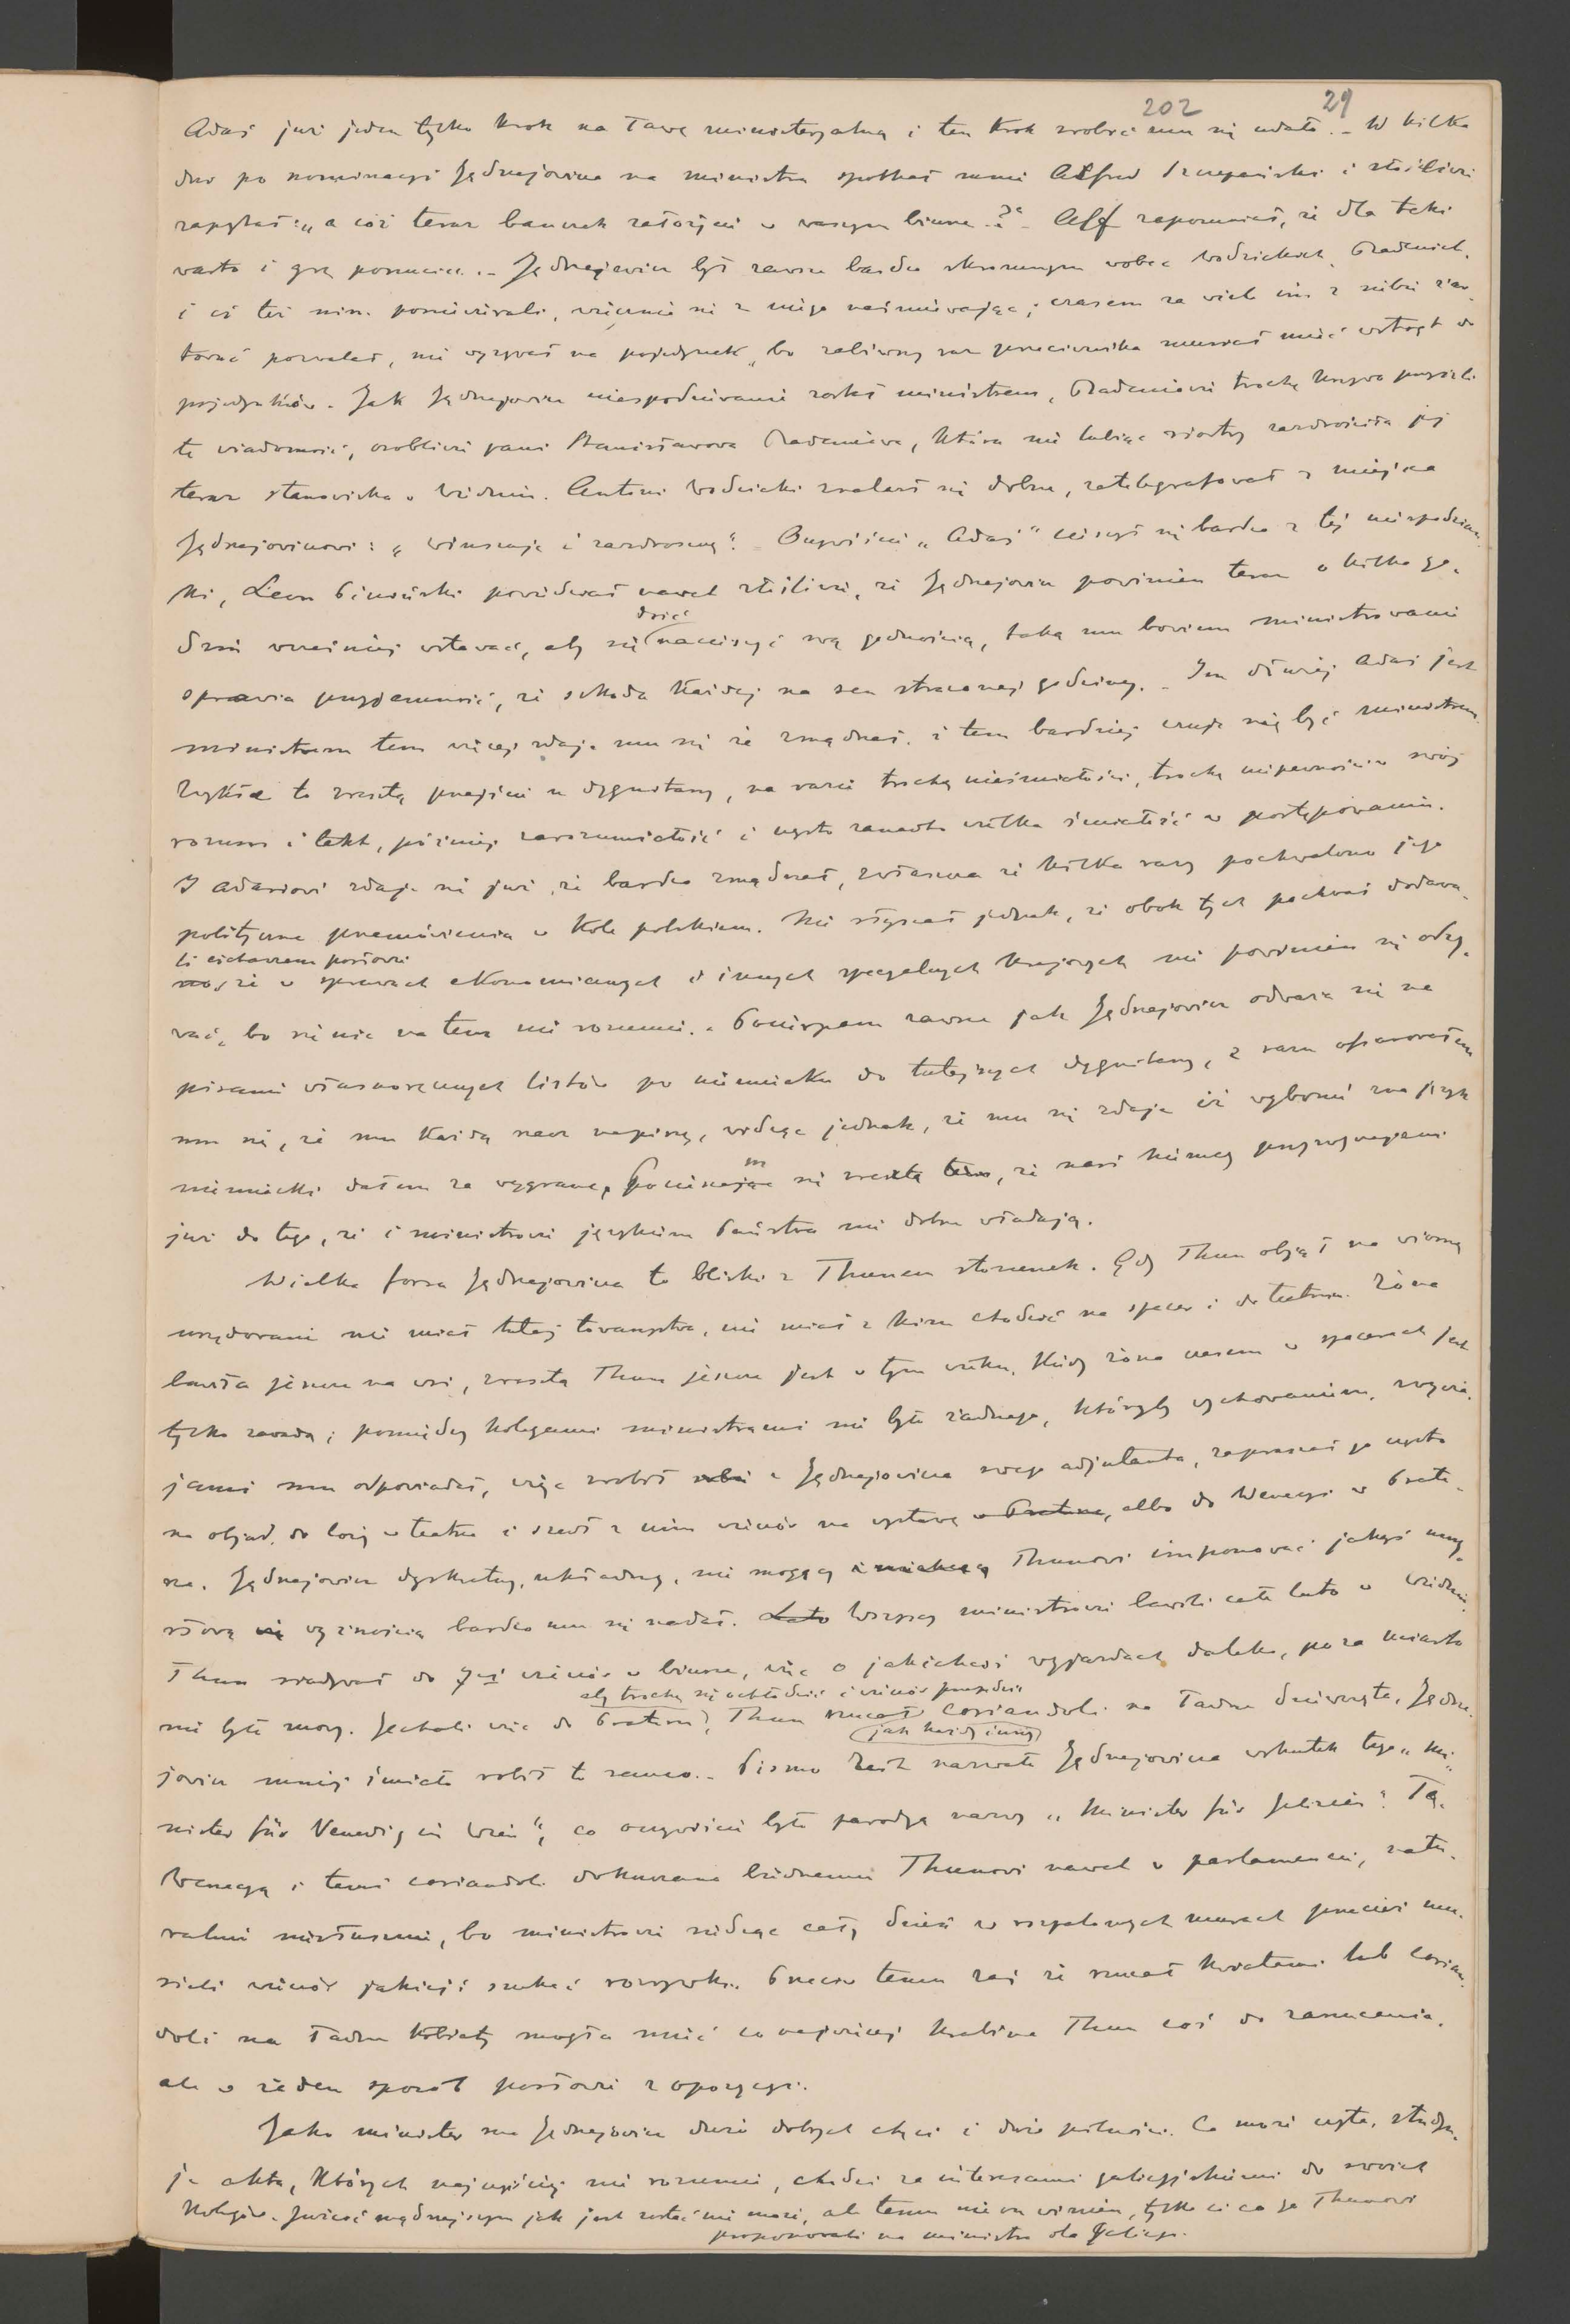 202 29
Adaś już jeden tylko krok na ławę ministeryalną i ten krok zrobić mu się udało. – W kilka
dni po nominacyi Jędrzejowicza na ministra spotkał mnie Alfred Szczepański i złośliwie
zapytał: „a cóż teraz bauczek założycie w waszym biurze?" – Alf zapomniał, że dla teki
warto i grę porzucić. – Jędrzejowicz był zawsze bardzo skromnym wobec Wodzickich, Badenich,
i ci też nim pomiatali, wiecznie się z niego naśmiewając; czasem za wiele im z siebie żar-
tować pozwalał, nie wyzywał na pojedynek, bo zabiwszy raz przeciwnika musiał mieć wstręt do
pojedynków. Jak Jędrzejowicz niespodziewanie został ministrem, Badeniowie trochę krzywo przyjęli
tę wiadomość, osobliwie pani Stanisławowa Badeniowa, która nie lubiąc siostry zazdrościła jej
teraz stanowiska w Wiedniu. Antoni Wodzicki znalazł się dobrze, zatelegrafował z miejsca
Jędrzejowiczowi: „winszuję i zazdroszczę". – Oczywiście „Adaś" cieszył się bardzo z tej niespodzian-
ki, Leon Piniński powiedział nawet złośliwie, że Jędrzejowicz powinien teraz o kilka go-
dzin wcześniej wstawać, aby się dość nacieszyć swą godnością, taką mu bowiem ministrowanie
sprawia przyjemność, że szkoda każdej na sen straconej godziny. – Im dłużej Adaś jest
ministrem tem więcej zdaje mu się że zmądrzał i tem bardziej czuje się być ministrem.
Zwykłe to zresztą przejście u dygnitarzy, na razie trochę nieśmiałości, trochę niepewności w swój
rozum i takt, później zarozumiałość i często zanadto wielka śmiałość w postępowaniu.
I Adasiowi zdaje się już, że bardzo zmądrzał, zwłaszcza że kilka razy pochwalono jego
polityczne przemówienia w Kole polskiem. Nie słyszał jednak, że obok tych pochwał dodawa-
li ciekawszem posłowie
no, że w sprawach ekonomicznych i innych specyalnych krajowych nie powinien się odzy-
wać, bo się nic na tem nie rozumie. – Pocieszam zawsze jak Jędrzejowicz odważa się na
pisanie własnoręcznych listów po niemiecku do tutejszych dygnitarzy, z razu ofiarowałem
mu się, że mu każdą rzecz napiszę, widząc jednak, że mu się zdaje iż wybornie zna język
niemiecki dałem za wygraną, pocieszam się zresztą tem, że nasi Niemcy przyzwyczajeni
już do tego, że i ministrowie językiem państwa nie dobrze władają.
Wielka forsa Jędrzejowicza to bliski z Thunem stosunek. Gdy Thun objął na wiosnę
urzędowanie nie miał tutaj towarzystwa, nie miał z kim chodzić na spacer i do teatru. Żona
bawiła jeszcze na wsi, zresztą Thun jeszcze jest w tym wieku, kiedy żona czasem w spacerach jest
tylko zawadą; pomiędzy kolegami ministrami nie było żadnego, któryby wychowaniem, zwycza-
jami mu odpowiadał, więc zrobił sobie z Jędrzejowicza swego adjutanta, zapraszał go często
na objad, do loży w teatrze i szedł z nim wieczór na wystawę w Pratrze, albo do Wenecyi w Prate-
rze. Jędrzejowicz dyskretny, układny, nie mogący i niechcący Thunowi imponować jakąś umy-
słową wyższością bardzo mu się nadał. Lato Wszyscy ministrowie bawili całe lato w Wiedniu,
Thun siadywał do 7ej wieczór w biurze, więc o jakichkolwiek wyjazdach daleko, poza miasto
aby trochę się ochłodzić i wieczór przepędzić
nie było mowy. Jechali więc do Prateru, Thun rzucał coriandoli na ładne dziewczęta, Jędrze-
jak każdy inny
jowicz mniej śmiało robił to samo. – Pismo Zeit nazwało Jędrzejowicza wskutek tego „Mi-
nister für Venedig in Wien", co oczywiście było parodyą nazwy „Minister für Galizien". Tą
Wenecyą i temi coriandoli dokuczano biednemu Thunowi nawet w parlamencie, natu-
ralnie niesłusznie, bo ministrowie siedząc cały dzień w rozpalonych murach przecież mu-
sieli wieczór jakiejś szukać rozrywki. Przeciw temu zaś że rzucał kwiatami lub corian-
doli na ładne kobiety mogła mieć co najwięcej hrabina Thun coś do zarzucenia,
ale w żaden sposób posłowie z opozycyi.
Jako minister ma Jędrzejowicz dużo dobrych chęci i dużo pilności. Co może czyta, studyu-
je akta, których najczęściej nie rozumie, chodzi za interesami galicyjskiemi do swoich
kolegów. Jużcić mądrzejszym jak jest zostać nie może, ale temu nie on winien, tylko ci co go Thunowi
proponowali na ministra dla Galicyi.